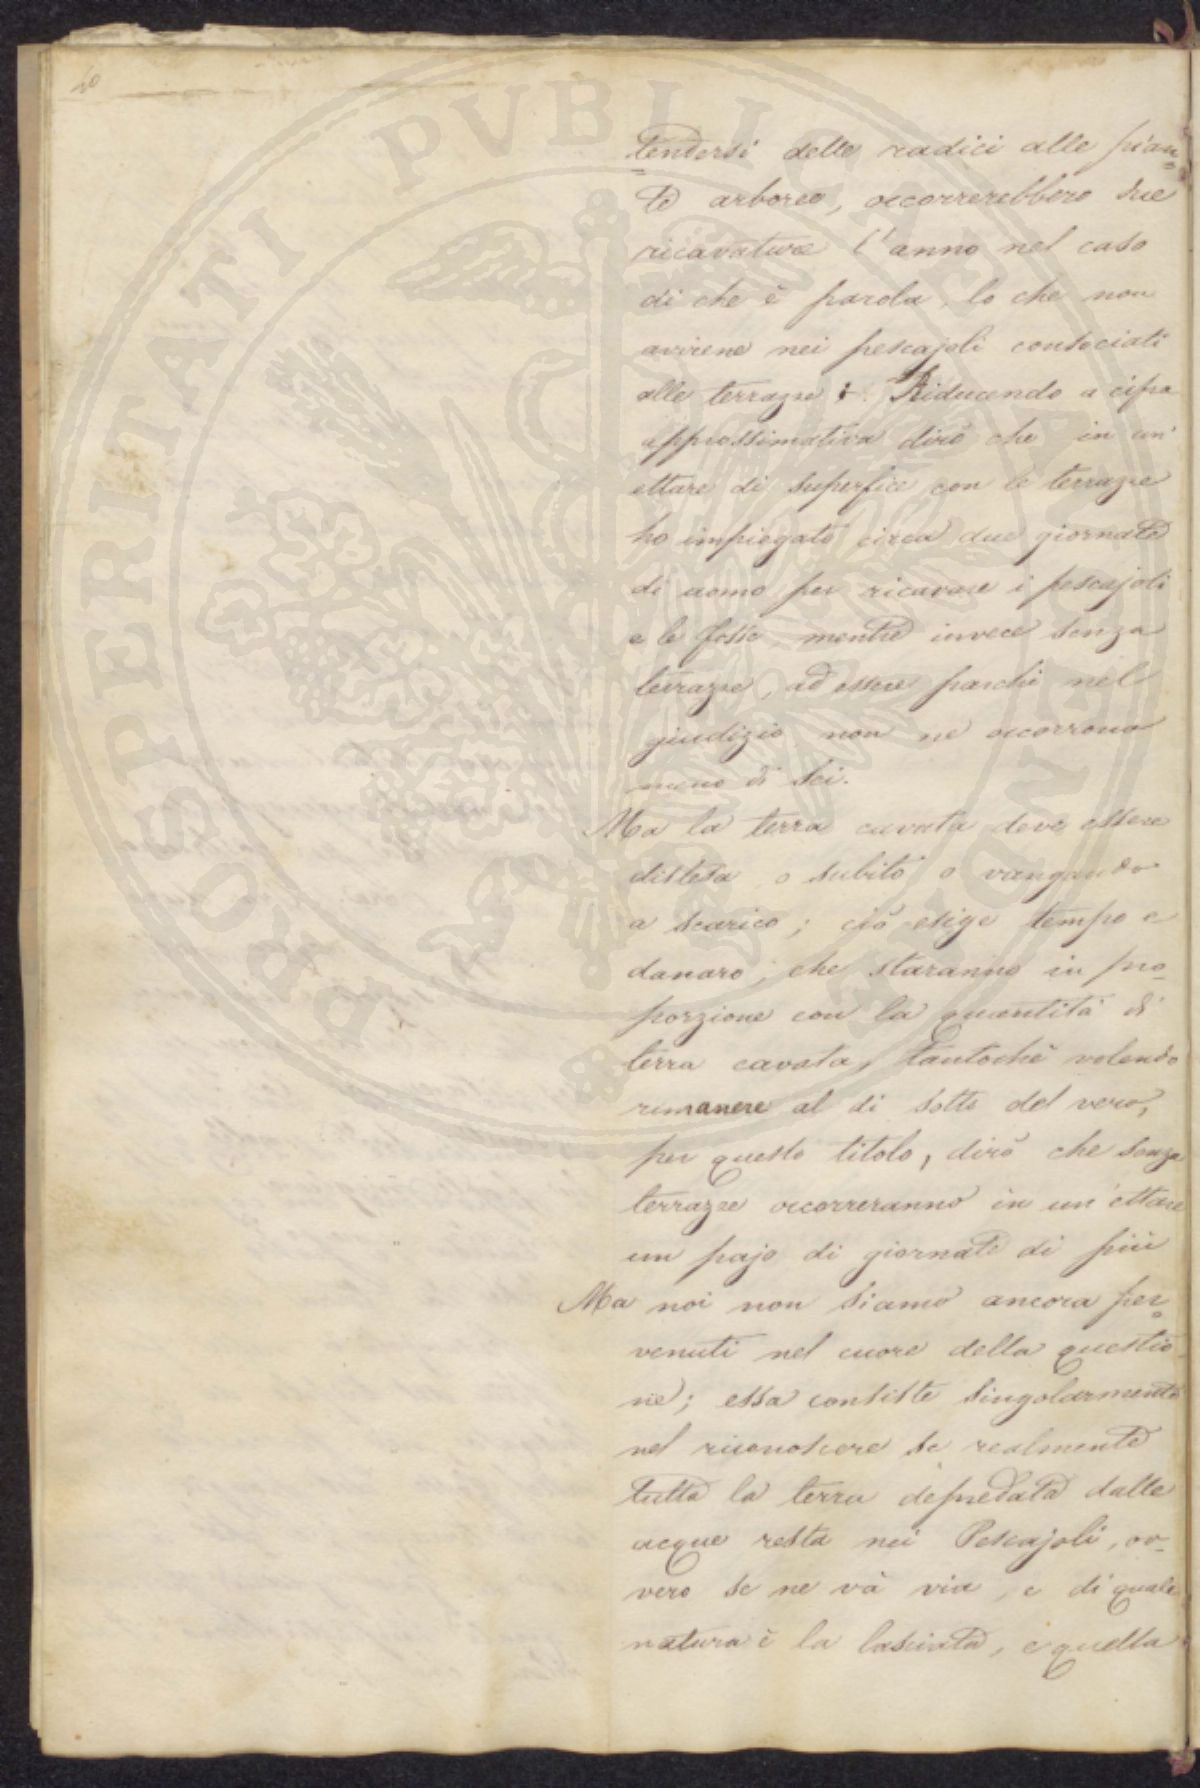 10
tendersi delle radici alle pian=
te arboree, occorrerebbero due
ricavature l'anno nel caso
di che è parola, lo che non
avviene nei pescajoli consociati
alle terrazze. Riducendo a cifra
approssimativa dirò che in un'
ettare di superfice con le terrazze
ho impiegato circa due giornate
di uomo per ricavare i pescajoli
e le fosse, mentre invece senza
terrazze, ad essere parchi nel
giudizio non ne occorrono
meno di sei.
Ma la terra cavata deve essere
distesa o subito o vangando
a scarico; ciò esige tempo e
danaro; che staranno in pro-
porzione con la quantità di
terra cavata, tantochè volendo
rimanere al di sotto del vero,
per questo titolo, dirò che senza
terrazze occorreranno in un'ettare
un pajo di giornate di più
Ma noi non siamo ancora per=
venuti nel cuore della questio-
ne; essa consiste singolarmente
nel riconoscere se realmente
tutta la terra depredata dalle
acque resta nei Pescajoli, ov-
vero se ne và via, e di quale
natura è la lasciata, e quella
PROSPERITATI PVBLICAE AVGENDAE